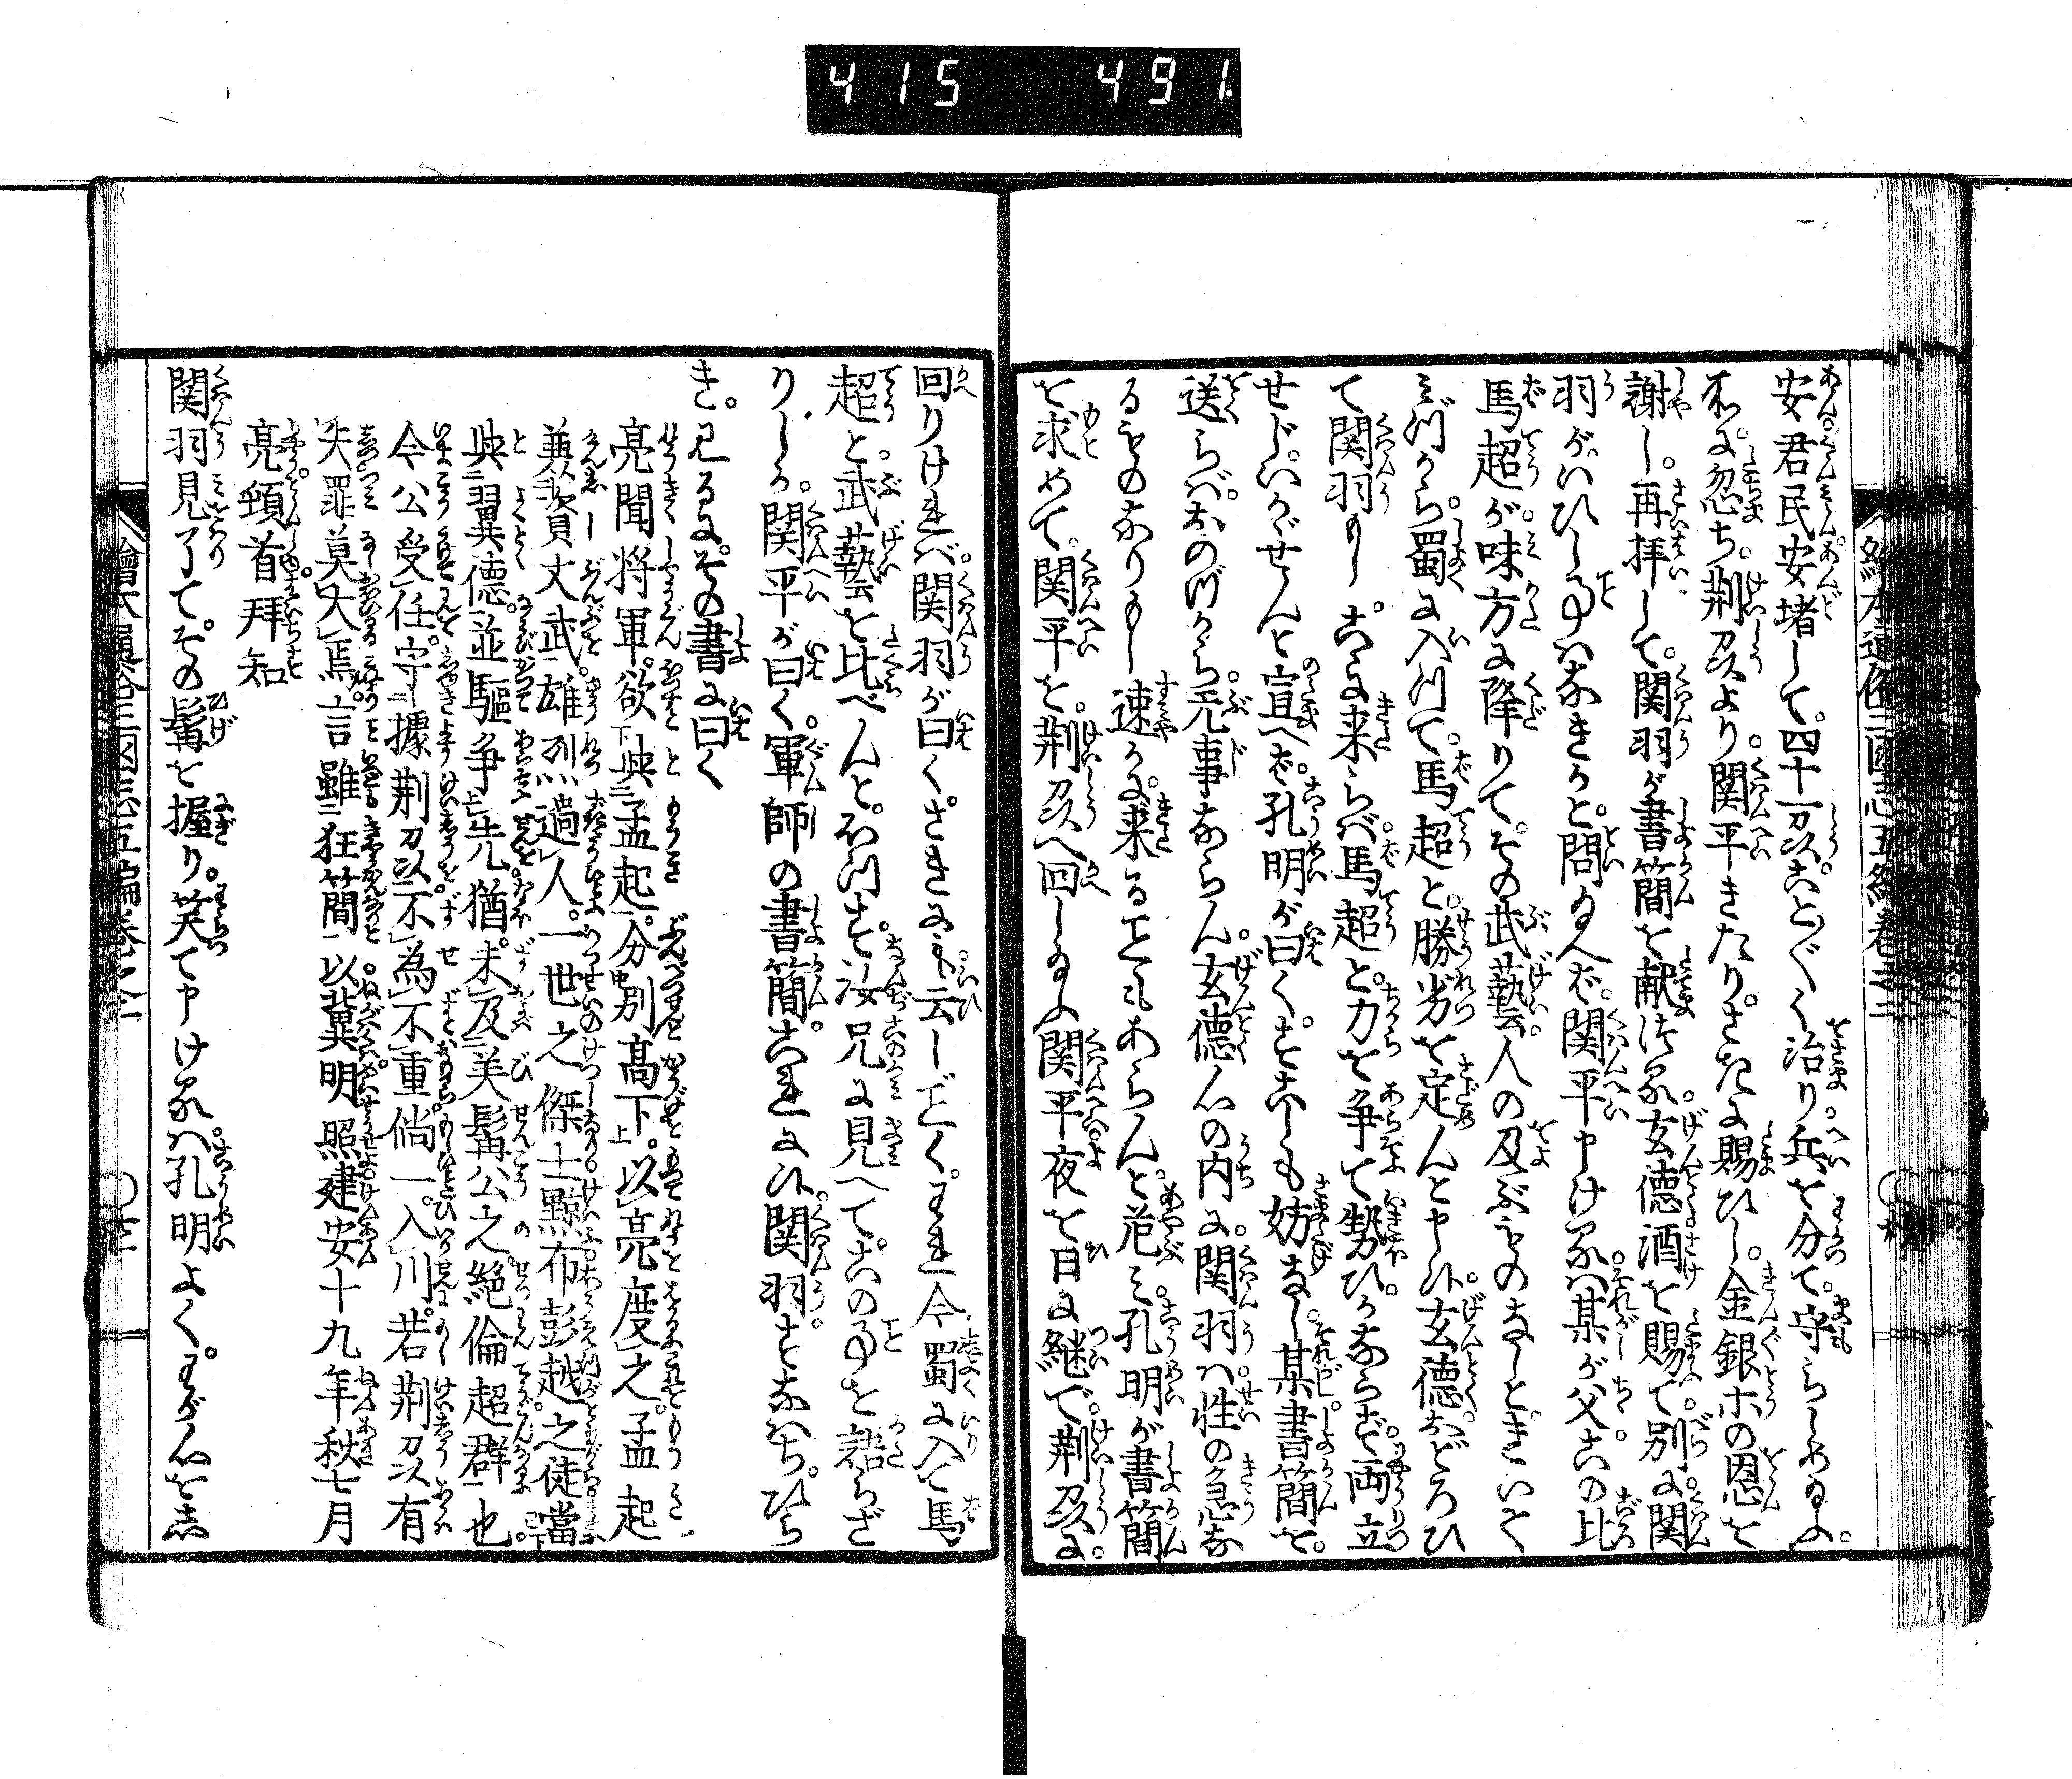 415 491
繪本通俗三國志五編巻之二
安君民安堵して。四十一州こと〴〵く治り兵を分て。守らしめ給ふ。
忽ち。荊州より。関平きたり。さきに賜ひし。金銀ホの恩を
謝し。再拝して。関羽が書簡を献ければ。玄徳酒を賜て別に関
羽がいひし事はなきかと。問給へば。関平申ければ。某が父この比
馬超が。味方に降りて。その武藝。人の及ぶものなしときいて
みづから。蜀に入て。馬超と。勝劣を定んと申候。玄徳おどろひ
て関羽もし。こゝに来らば。馬超と。力を争て勢ひ。かならず。両立
せじ。いかゞせんと宣へば。孔明が曰く。すこしも妨なし。某書簡を。
送らば。おのづから。无事ならん。玄徳心の内に。関羽は。性の急な
るものなりもし速かに。来る事もあらんと。危み。孔明が書簡
を求めて。関平を。荊州へ回し給ふ関平。夜を日に継で。荊州に。
回りければ。関羽が曰く。さきにも。云しごとく。われ今蜀に入て馬
超と。武藝を比べんと。欲す。汝兄に見へて。この事を語らざ
りしか。関平が曰く。軍師の書簡。これに候。関羽。すなはち。ひら
き。見るに。その書に曰く
亮聞将軍。欲下與二孟起一。分中別高下上。以亮度之。孟起
兼資文武雄烈過人。一世之傑士黥布彭越之徒當
與二翼徳。並駆争上先猶。未及美髯公之。絶倫超群一也
今公受任。守二據荊州以不為不重倘一。入川。若荊州有
失罪莫大焉。言雖二狂簡一以冀明照建安十九年秋七月
亮頓首。拜知
関羽見了て。その髯を握り。笑て申ければ。孔明よく。わが心を志